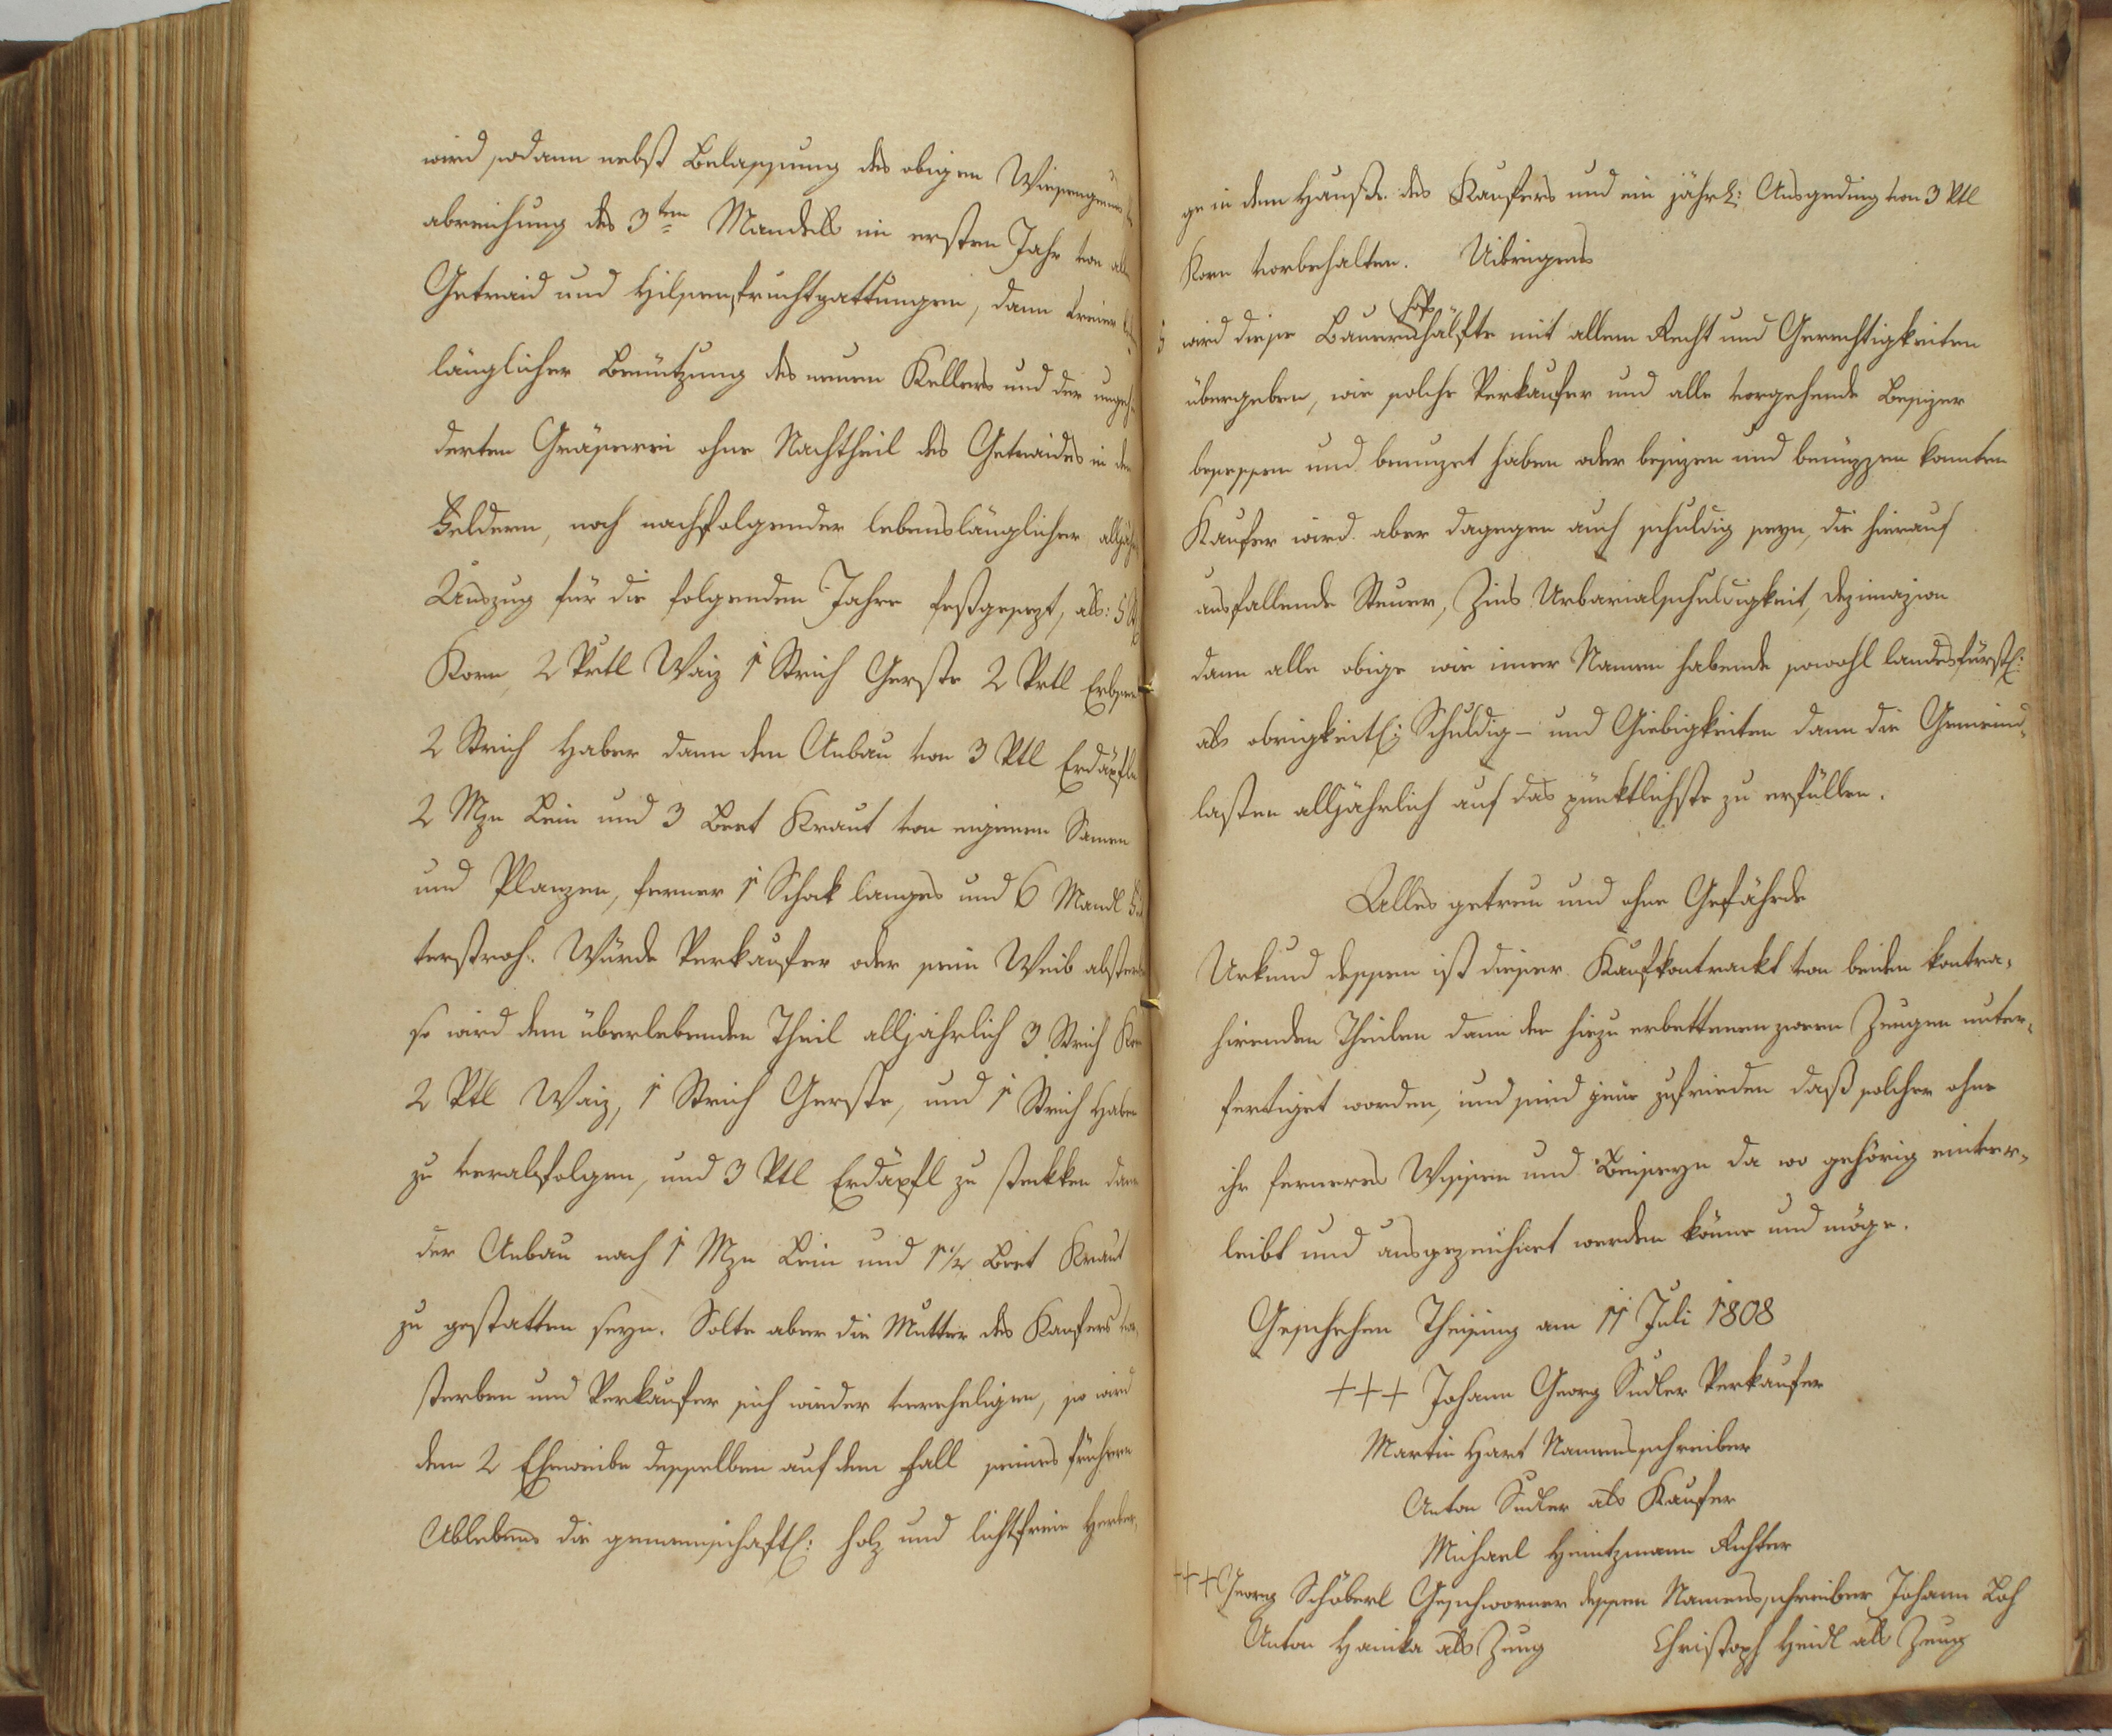 wird sodann nebst Belassung des obigen
abreichung des 3ten Mandels im ersten Jahr von
Getraid und Hilsenfruchtgattungen, dann
länglicher Benützung des neuen Kellers und der
derten Gräserei ohne Nachtheil des Getraides in den
Feldern, noch nachfolgender lebenslänglicher
Auszug für die folgenden Jahre festgesezt, als: 5
Korn, 2 Vrtl Waiz 1 Strich Gerste 2 Vrtl Erbsen
2 Strich Haber dann den Anbau von 3 Vtl Erdäpfln
2 Mzn Lein und 3 Beet Kraut von eigenen Samen
und Planzen, ferner 1 Schok langes und 6 Mandl
terstroh. Würde Verkaufer oder sein Weib
so wird dem überlebenden Theil alljährlich 3 Strich Korn
2 Vtl Waiz, 1 Strich Gerste, und 1 Strich Haber
zu verabfolgen, und 3 Vtl Erdäpfl zu stekken dann
der Anbau nach 1 Mzn Lein und 1 1/2 Beet Kraut
zu gestatten seyn. Solte aber die Mutter des Kaufers
sterben und Verkaufer sich wieder vereheligen, so wird
dem 2 Eheweibe desselben auf dem Fall seines früheren
Ablebens die gemeinschaftl: holz und lichtfreie Herber,
ge in dem Hauße des Kaufers und ein jährl: Ausgeding von 3 Vtl
Korn vorbehalten. Uibrigens
5 wird diese Bauernhofshälfte mit allem Recht und Gerechtigkeiten
übergeben, wie solche Verkaufer und alle vorgehende Besizer
besessen und benuzet haben oder besizen und benüzzen konnten
Kaufer wird aber dagegen auch schuldig seyn, die hierauf
ausfallende Steuer, Zins Urbarialschuldigkeit, Dezimazion
dann alle obige wie imer Namen habende sowohl landesfürstl:
als obrigkeitl: Schuldig- und Giebigkeiten dann die Gemeind,
lasten alljährlich auf das pünktlichste zu erfüllen.
Alles getreu und ohne Gefährde
Urkund dessen ist dieser Kaufkontrackt von beiden kontra,
hirenden Theilen dann den hiezu erbettenen zween Zeugen unter,
fertiget worden, und sind jene zufrieden daß solcher ohne
ihr ferneres Wissen und Beiseyn da wo gehörig einver,
leibt und ausgezeichnet werden könne und möge.
Geschehen Theising am 11 Juli 1808
+++ Johann Georg Sudler Verkaufer
Martin Hart Namensschreiber
Anton Sudler als Kaufer
Michael Heintzmann Richter
+++ Georg Schöberl Geschworner dessen Namensschreiber Johann Loh
Anton Hanika als Zeug Christoph Heidl als Zeug